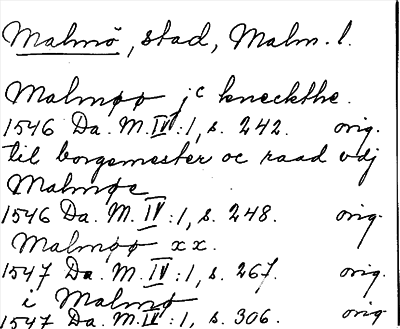 Malmö, stad, Malm. l.
Malmøø jc kneckthe.
1546 Da. M. IV:1, s. 242. orig.
til borgemester oc raad vdj
Malmøe
1546 Da. M. IV:1, s. 248. orig.
Malmøø xx.
1547 Da. M. IV:1, s. 267. orig.
i Malmø
1547 Da. M. IV:1, s. 306. orig.